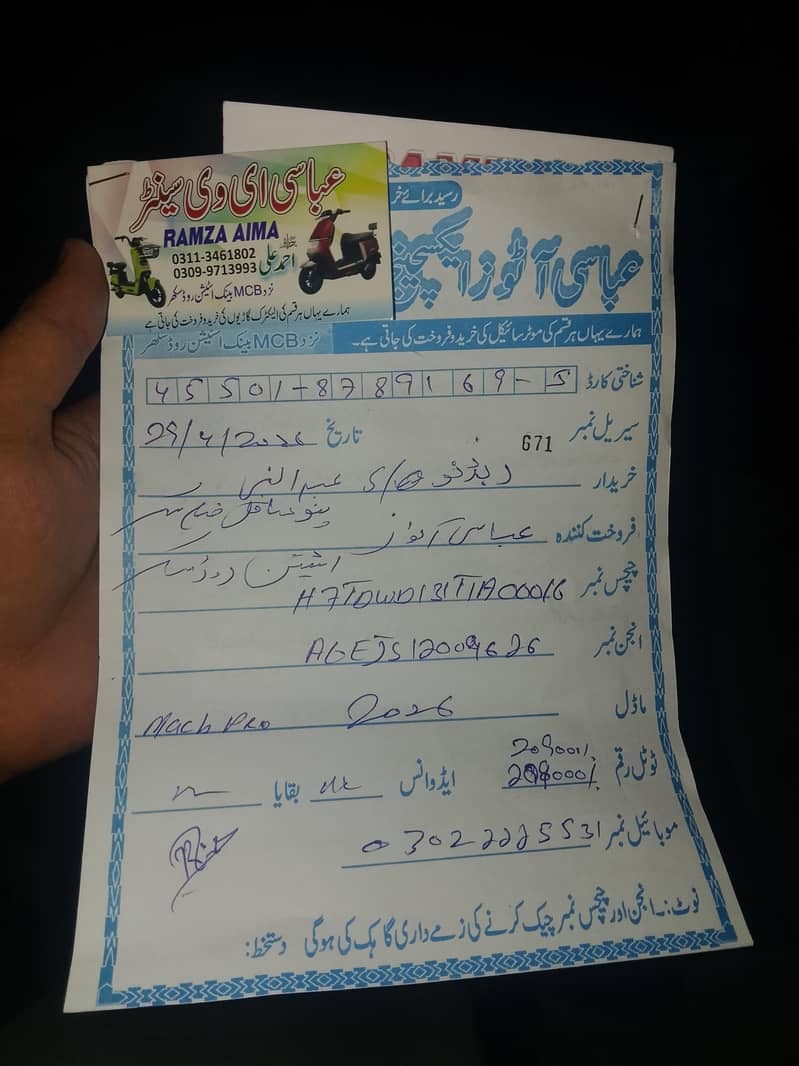 عباسی ای وی سینٹر
RAMZA AIMA
0311-3461802
0309-9713993
احمد علی
نزد MCB بینک اسٹیشن روڈ سکھر
ہمارے یہاں ہر قسم کی الیکٹرک گاڑیوں کی خرید و فروخت کی جاتی ہے
رسید برائے
عباسی آٹوز ایکسچینج
ہمارے یہاں ہر قسم کی موٹر سائیکل کی خرید و فروخت کی جاتی ہے۔
نزد MCB بینک اسٹیشن روڈ سکھر
شناختی کارڈ 45501-8789169-5
سیریل نمبر 671 تاریخ 29/4/2026
خریدار S/O عبدالنبی
فروخت کنندہ عباسی آٹوز
اسٹیشن روڈ سکھر
چیچس نمبر
انجن نمبر
ماڈل 2026 Mach Pro
ٹوٹل رقم ایڈوانس بقایا
موبائیل نمبر 03022225531
نوٹ:۔ انجن اور چیچس نمبر چیک کرنے کی زمے داری گاہک کی ہوگی دستخط: